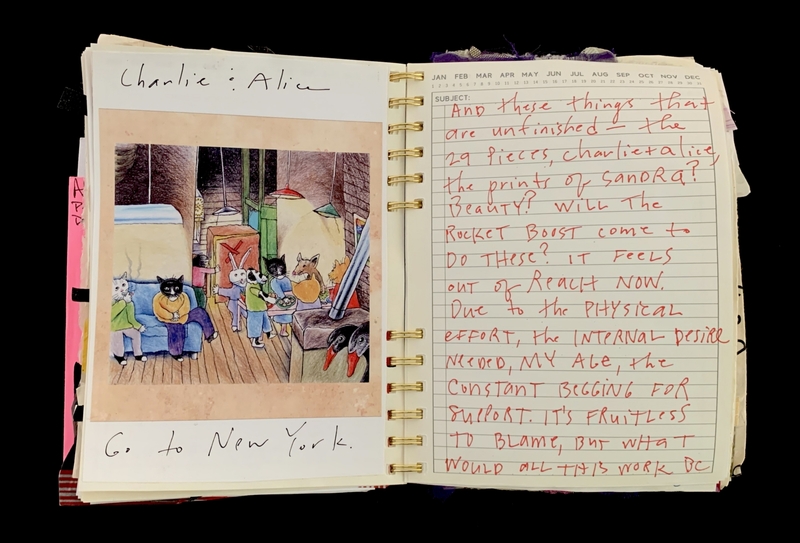 Charlie & Alice
Go to New York.
A
P
D
JAN FEB MAR APR MAY JUN JUL AUG SEP OCT NOV DEC
SUBJECT:
AND these things that
are unfinished — the
29 pieces, charlie + alice,
the prints of SANDRA?
Beauty? WILL THE
ROCKET BOOST COME to
DO THESE? IT FEELS
OUT OF REACH NOW.
Due to the PHYSICAL
effort, the INTERNAL DESIRE
NEEDED, MY AGE, the
CONSTANT BEGGING FOR
SUPPORT. IT'S FRUITLESS
TO BLAME, BUT WHAT
WOULD ALL THIS WORK BE